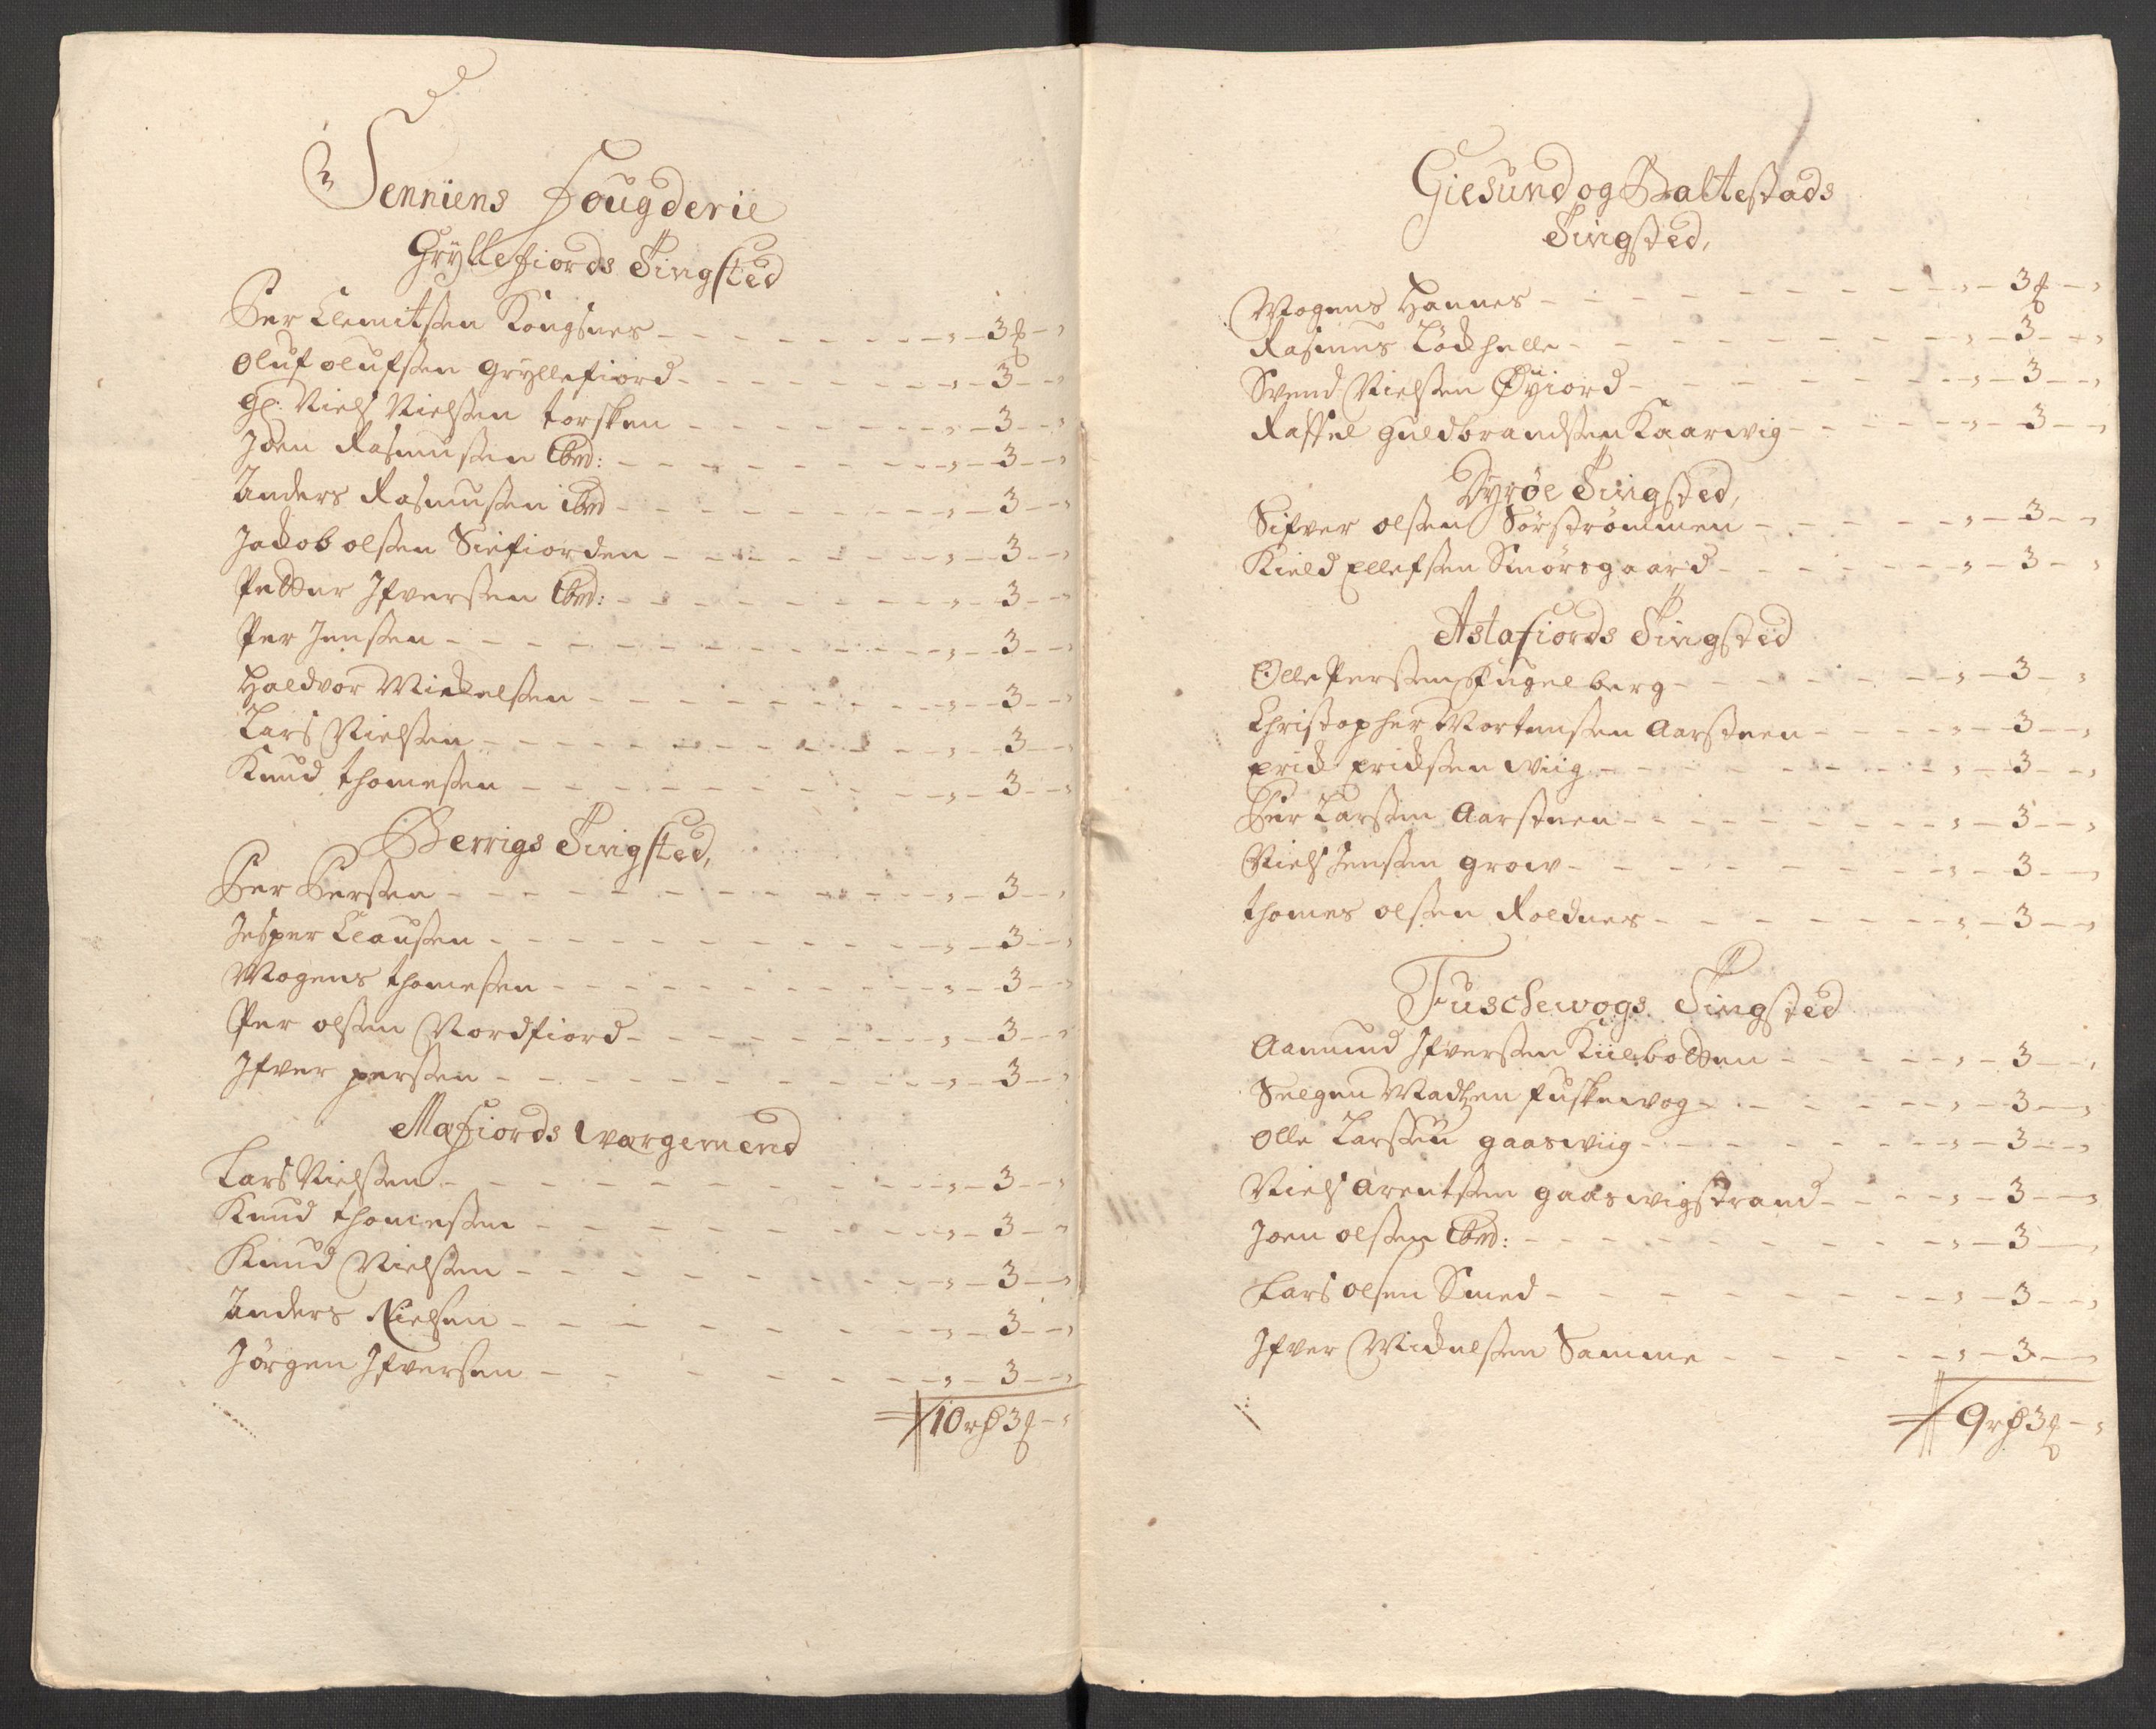 Senniens Fougderie
Gryllefiords Tingsted
Per Clemitsen Kongsnes - - - „ - 3 ß - „
Oluf olufsen gryllefiord - - - „ - 3 - „
Gl. Niels Nielsen torsken - - - „ - 3 - „
Joen Rasmusen Ibmd: - - - „ - 3 - „
Anders Rasmusen ibmd - - - „ - 3 - „
Jackob olsen Siefiorden - - - „ - 3 - „
Petter Ifversen Ibmd: - - - „ - 3 - „
Per Jensen - - - „ - 3 - „
Haldvor Mickelsen - - - „ - 3 - „
Lars Nielsen - - - „ - 3 - „
Knud thomesen - - - „ - 3 - „
Berrigs Tingsted,
Per Persen - - - „ - 3 - „
Jesper Clausen - - - „ - 3 - „
Mogens thomesen - - - „ - 3 - „
Per olsen Nordfiord - - - „ - 3 - „
Ifver persen - - - „ - 3 - „
Mafiords wargemend
Lars Nielsen - - - „ - 3 - „
Knud thomesen - - - „ - 3 - „
Knud Nielsen - - - „ - 3 - „
Anders Nielsen - - - „ - 3 - „
Jørgen Ifversen - - - „ - 3 - „
10 rd 3 ß - „
Giesund og Baltestads
Tingsted,
Mogens Hannes - - - „ - 3 ß - „
Rasmus Löckhelle - - - „ - 3 - „
Svend Nielsen Øyiord - - - „ - 3 - „
Raffel guldbrandsen Kaarwig - - - „ - 3 - „
Dyrøe Tingsted,
Sifver olsen Sørstrømmen - - - „ - 3 - „
Kield Ellefsen Smörsgaard - - - „ - 3 - „
Astafiords Tingsted
Olle Persen Fugelberg - - - „ - 3 - „
Christopher Mortensen Aarsteen - - - „ - 3 - „
Erick Ericksen wiig - - - „ - 3 - „
Per Larsen Aarsteen - - - „ - 3 - „
Niels Jensen grow - - - „ - 3 - „
thomes olsen Roldnes - - - „ - 3 - „
Fuschewogs Tingsted
Aamund Ifversen Kiilbotten - - - „ - 3 - „
Selgen Madtzen fuskewog - - - „ - 3 - „
Olle Larsen gaaswiig - - - „ - 3 - „
Niels Arentsen gaaswigstrand - - - „ - 3 - „
Joen olsen Ibmd: - - - „ - 3 - „
Lars olsen Smed - - - „ - 3 - „
Ifver Mickelsen Samme - - - „ - 3 - „
9 rd 3 ß - „